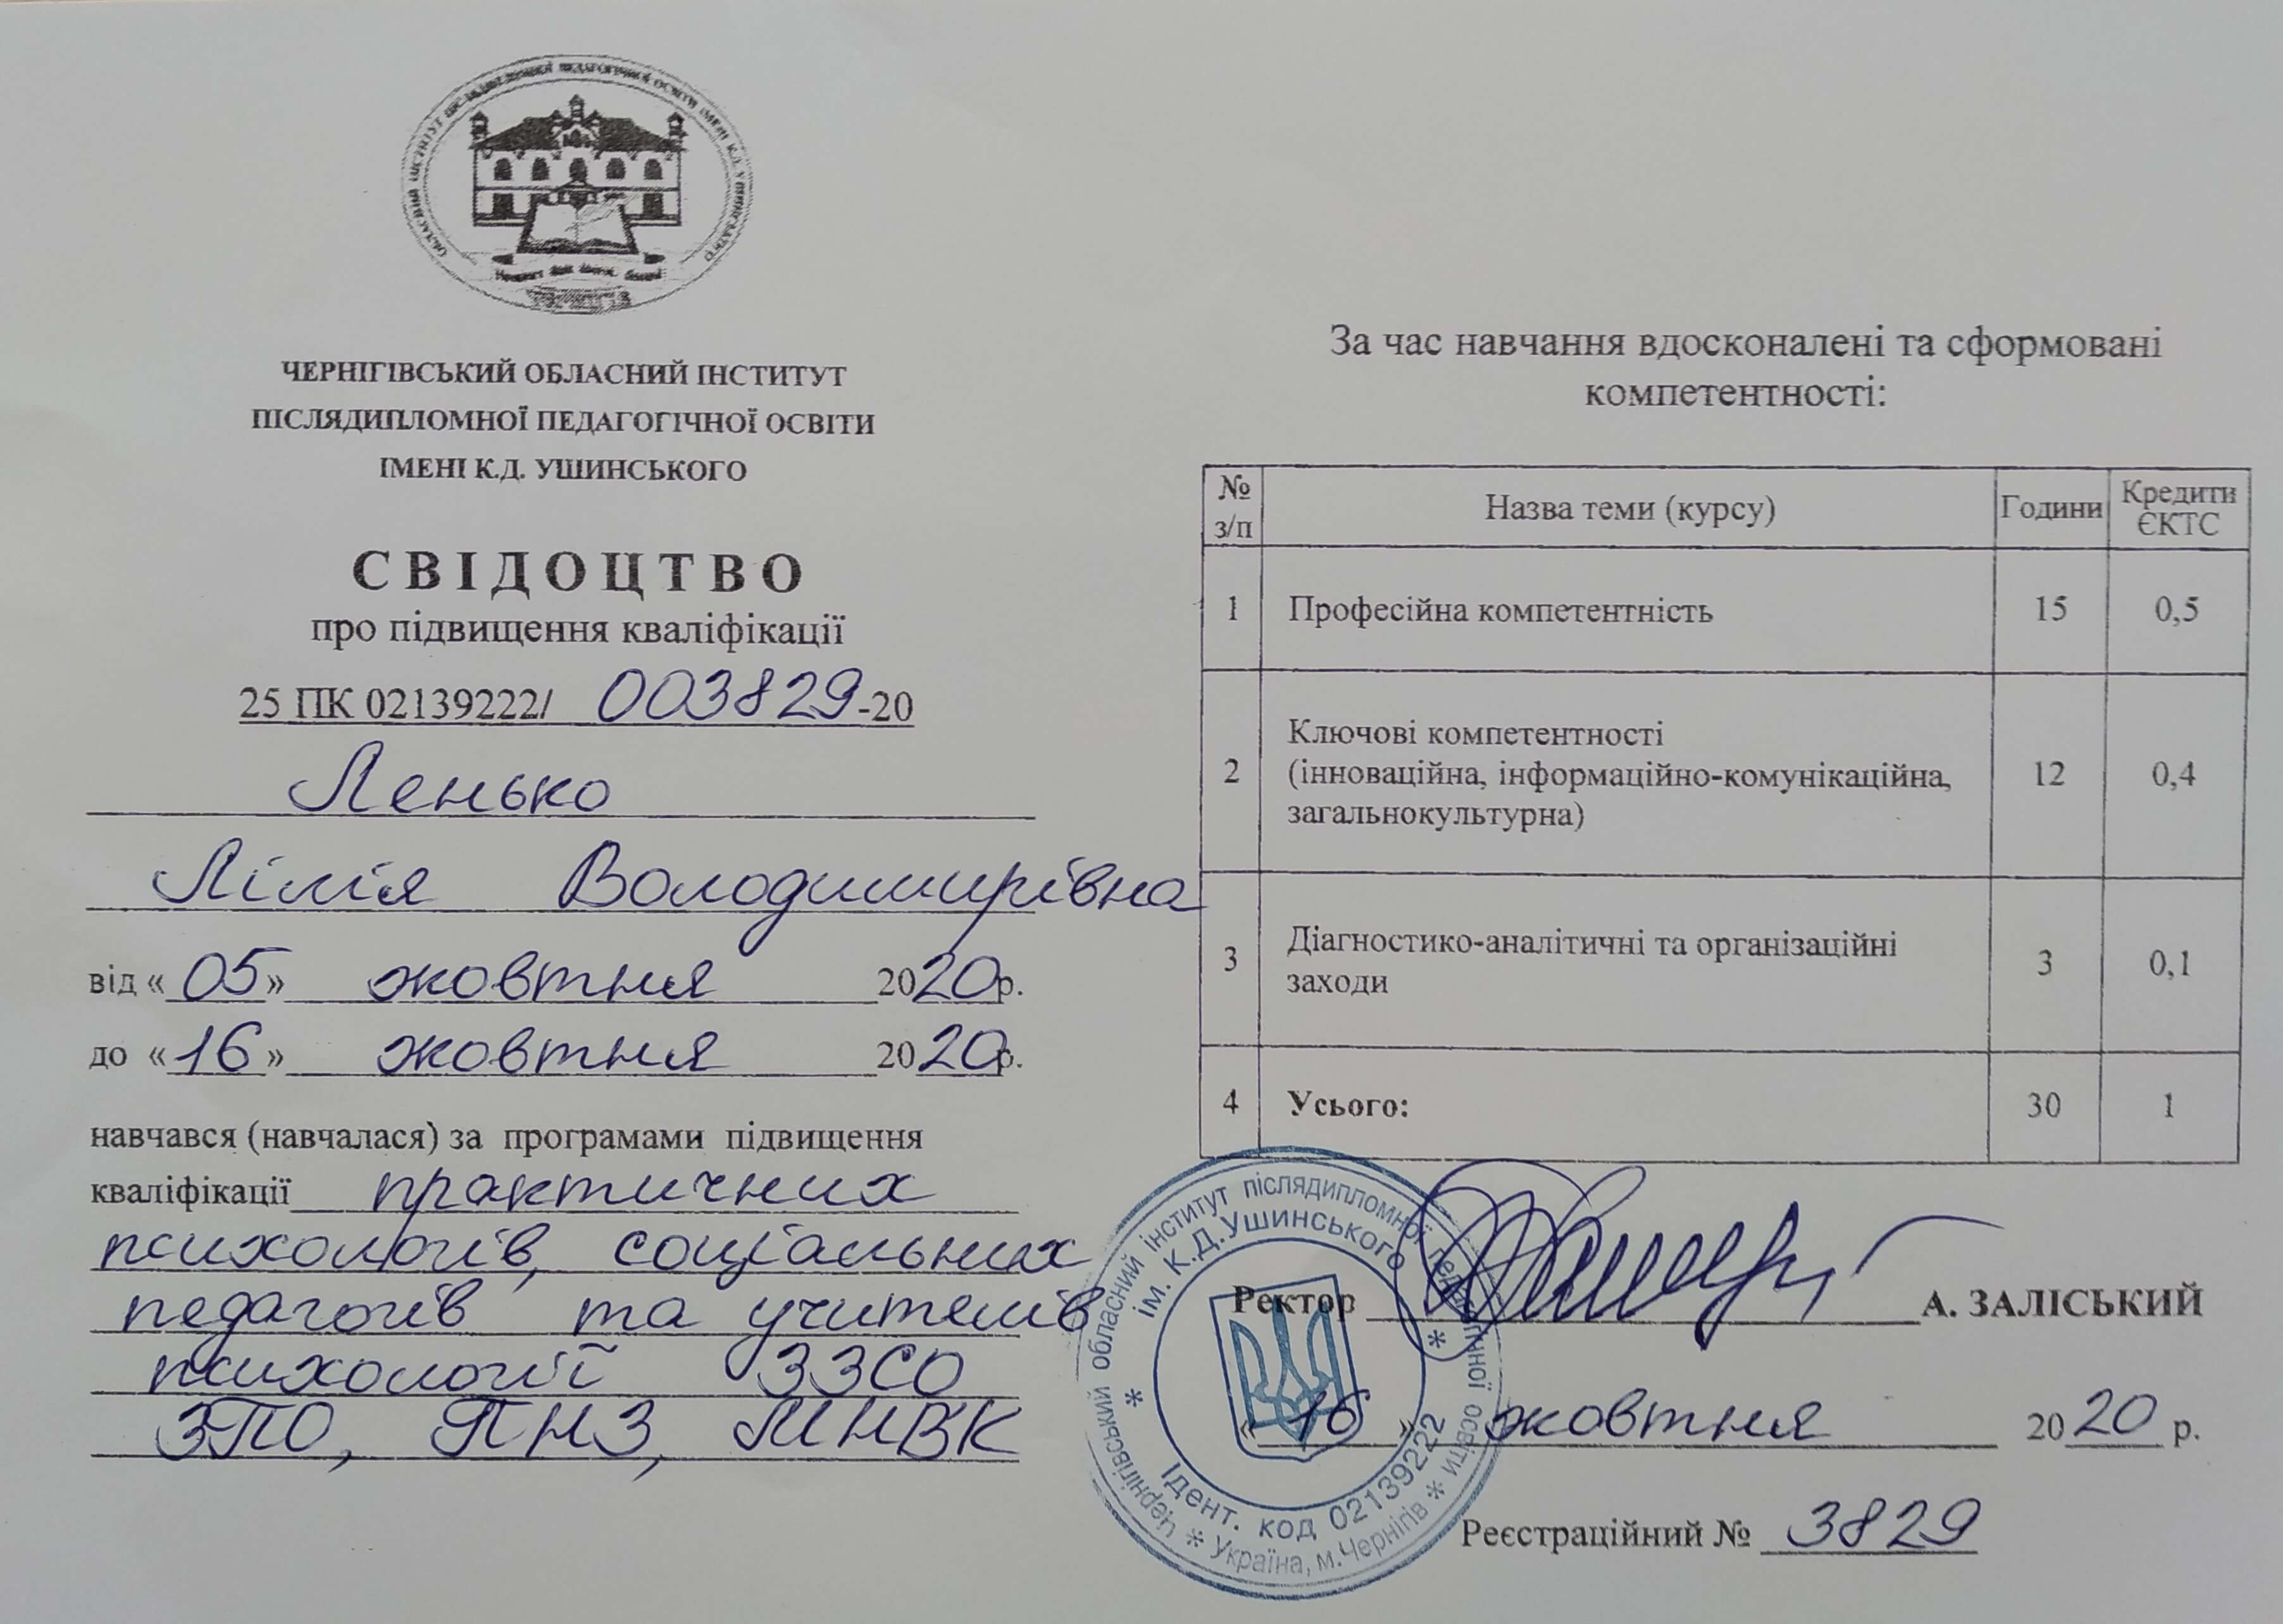 ОБЛАСНИЙ ІНСТИТУТ ПІСЛЯДИПЛОМНОЇ ПЕДАГОГІЧНОЇ ОСВІТИ ІМЕНІ К.Д. УШИНСЬКОГО
ЧЕРНІГІВСЬКИЙ ОБЛАСНИЙ ІНСТИТУТ
ПІСЛЯДИПЛОМНОЇ ПЕДАГОГІЧНОЇ ОСВІТИ
ІМЕНІ К.Д. УШИНСЬКОГО
СВІДОЦТВО
про підвищення кваліфікації
25 ПК 02139222/ 003829-20
Ленько
Лілія Володимирівна
від « 05 » жовтня 2020 р.
до « 16 » жовтня 2020 р.
навчався (навчалася) за програмами підвищення
кваліфікації практичних
психологів, соціальних
педагогів та учителів
психології ЗЗСО
ЗПО, ПНЗ, МНВК
За час навчання вдосконалені та сформовані
компетентності:
№ з/п Назва теми (курсу) Години Кредити ЄКТС
1 Професійна компетентність 15 0,5
2 Ключові компетентності (інноваційна, інформаційно-комунікаційна, загальнокультурна) 12 0,4
3 Діагностико-аналітичні та організаційні заходи 3 0,1
4 Усього: 30 1
Ректор А. ЗАЛІСЬКИЙ
« 16 » жовтня 2020 р.
Реєстраційний № 3829
* Чернігівський обласний інститут післядипломної педагогічної освіти * Україна, м.Чернігів
* ім. К.Д.Ушинського *
Ідент. код 02139222